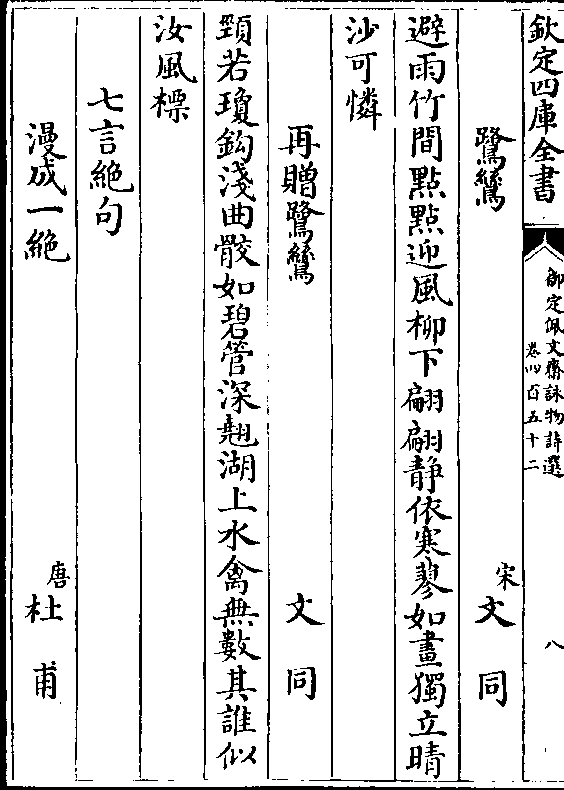 欽定四庫全書
御定佩文齋詠物詩選
卷四百五十二
八
鷺鷥
宋文同
避雨竹間點點迎風柳下翩翩静依寒蓼如畫獨立晴
沙可憐
再贈鷺鷥
文同
頸若瓊鈎淺曲骹如碧管深翹湖上水禽無數其誰似
汝風標
七言絶句
漫成一絶
唐杜甫